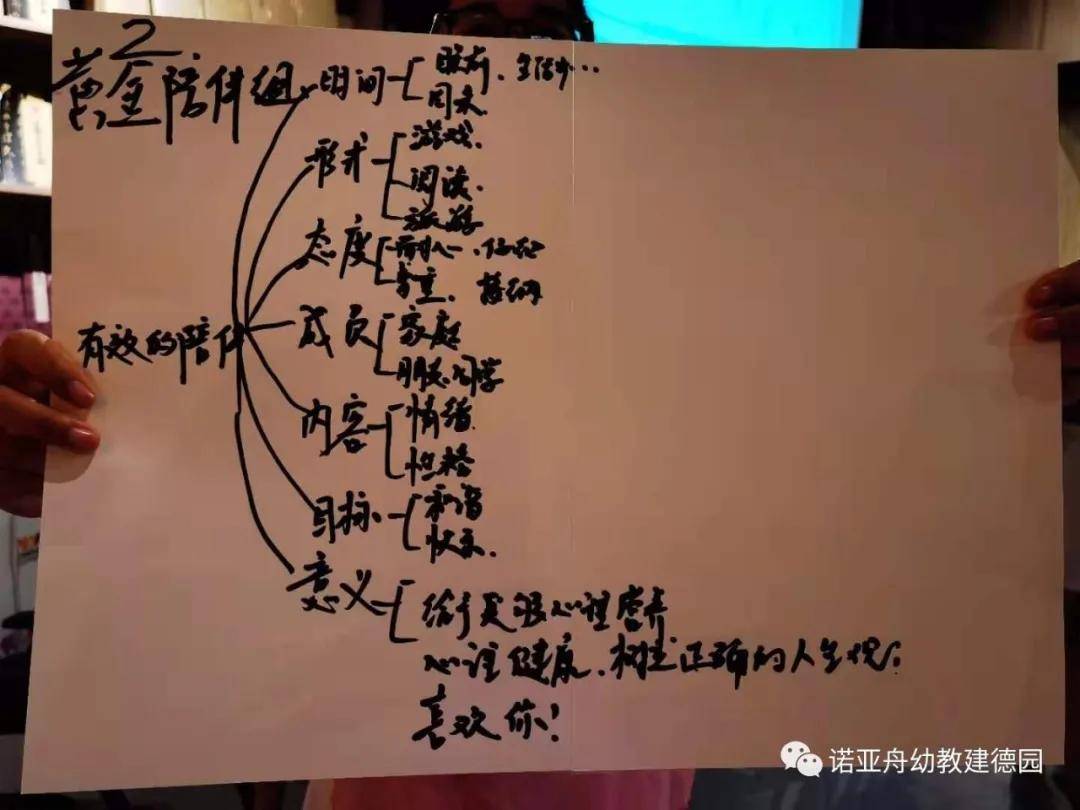 2
黄金陪伴组
有效的陪伴
时间
睡前、生活中…
周末
形式
游戏
阅读
旅游
态度
耐心、
尊重、接纳
成员
家庭
朋友、同学
内容
情绪
性格
目标
和谐
快乐
意义
给予足够心理营养
心理健康、树立正确的人生观;
喜欢你!
诺亚舟幼教建德园